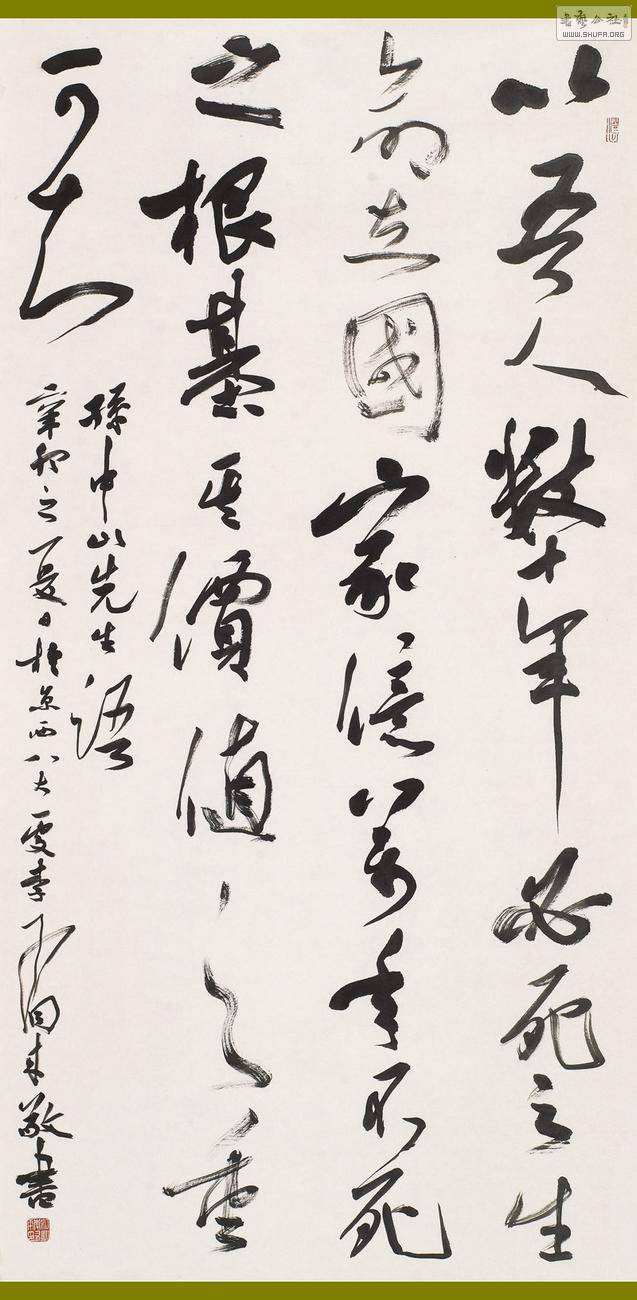 以吾人數十年必死之生
命立國家億萬年不死
之根基其價值之重
可知
孫中山先生語
辛卯之夏日於京西八大處李來敬書
書藝公社
WWW.SHUFA.ORG